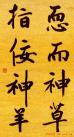 而神草
指佞神羊